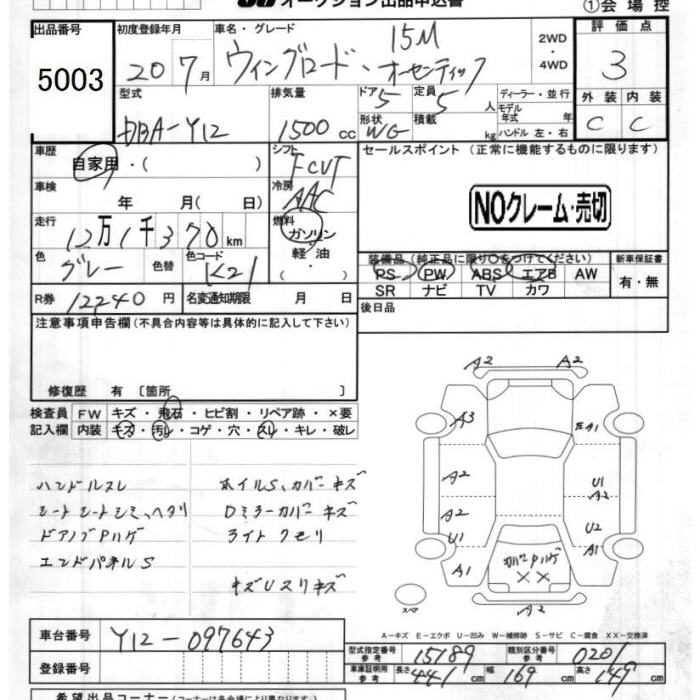 オークション出品申込書 ①会場控
出品番号 初度登録年月 車名・グレード 評価点
5003 20 7月 ウィングロード・15M オーセンティック 2WD ・4WD 3
型式 排気量 ドア 定員 ディーラー・並行 外装 内装
DBA-Y12 1500cc 5 5人 モデル年式 年 C C
形状 WG 積載 kg ハンドル 左・右
車歴 自家用・( ) シフト FCVT セールスポイント (正常に機能するものに限ります)
車検 年 月( 日) 冷房 AAC
NOクレーム・売切
走行 12万1千370km 燃料 ガソリン
軽油
・( )
色 グレー 色替 色コード K21
装備品(純正品に限り○をつけてください) 新車保証書
PS PW ABS エアB AW 有・無
SR ナビ TV カワ
R券 12240円 名変通知期限 月 日 後日品
注意事項申告欄(不具合内容等は具体的に記入して下さい)
修復歴 有〔箇所 〕
検査員 FW キズ・飛石・ヒビ割・リペア跡・×要
記入欄 内装 キズ・汚レ・コゲ・穴・スレ・キレ・破レ
ハンドルスレ ホイルS、カバーキズ
シートシートシミ、ヘタリ Dミラーカバーキズ
ドアノブPハゲ ライトクモリ
エンドパネルS
キズUスリキズ
A2 A2
A3 EA1
A2 U1
A2
A2 U2
U1 A1
A1 カバーPハゲ A1
××
スペア A2
A-キズ E-エクボ U-凹み W-補修跡 S-サビ C-腐食 XX-交換済
車台番号 Y12-097643
型式指定番号 参考 15189 類別区分番号 参考 0201
登録番号 車庫証明用 参考 長さ 441cm 幅 169cm 高さ 149cm
希望出品コーナー(